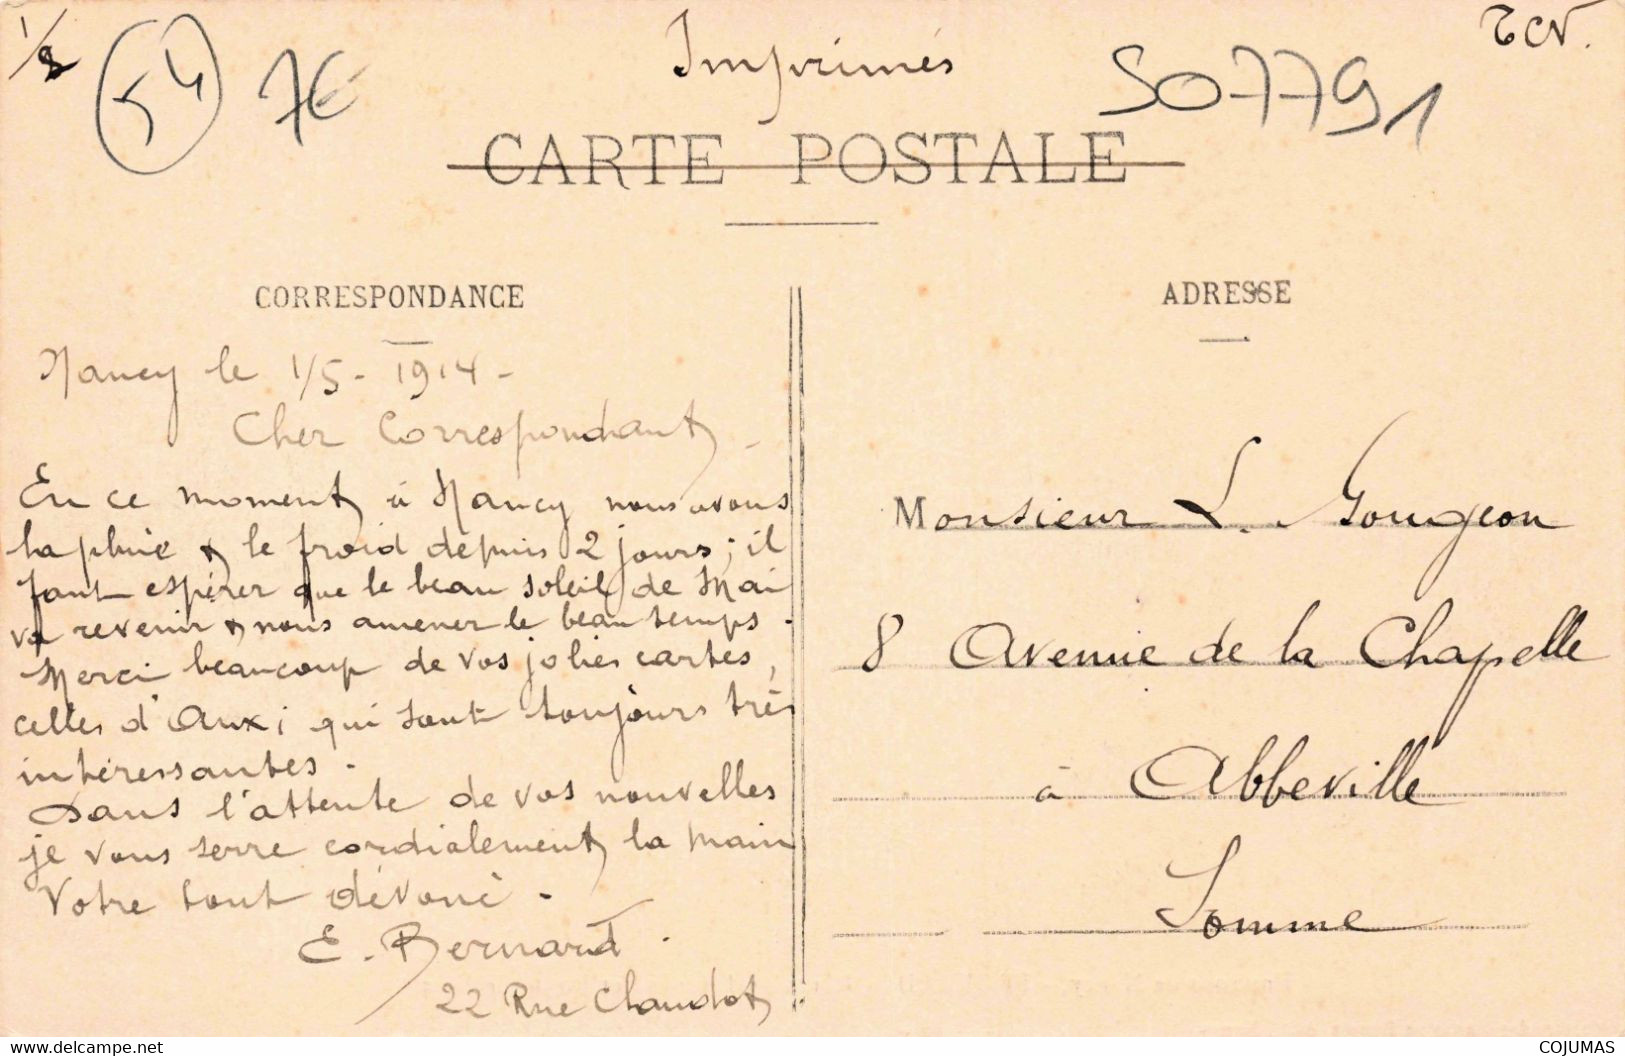 1/8
54
7€
Imprimés
TCV.
S07791
CARTE POSTALE
CORRESPONDANCE
Nancy le 1/5 - 1914 -
Cher Correspondant -
En ce moment à Nancy nous avons
la pluie & le froid depuis 2 jours ; il
faut espérer que le beau soleil de Mai
va revenir & nous amener le beau temps.
Merci beaucoup de vos jolies cartes,
celles d'Auxi qui sont toujours très
intéressantes.
Dans l'attente de vos nouvelles
je vous serre cordialement la main
Votre tout dévoué.
E. Bernard.
22 Rue Chaudot
ADRESSE
Monsieur L. Gougeon
8 Avenue de la Chapelle
à Abbeville
Somme
www.delcampe.net
COJUMAS